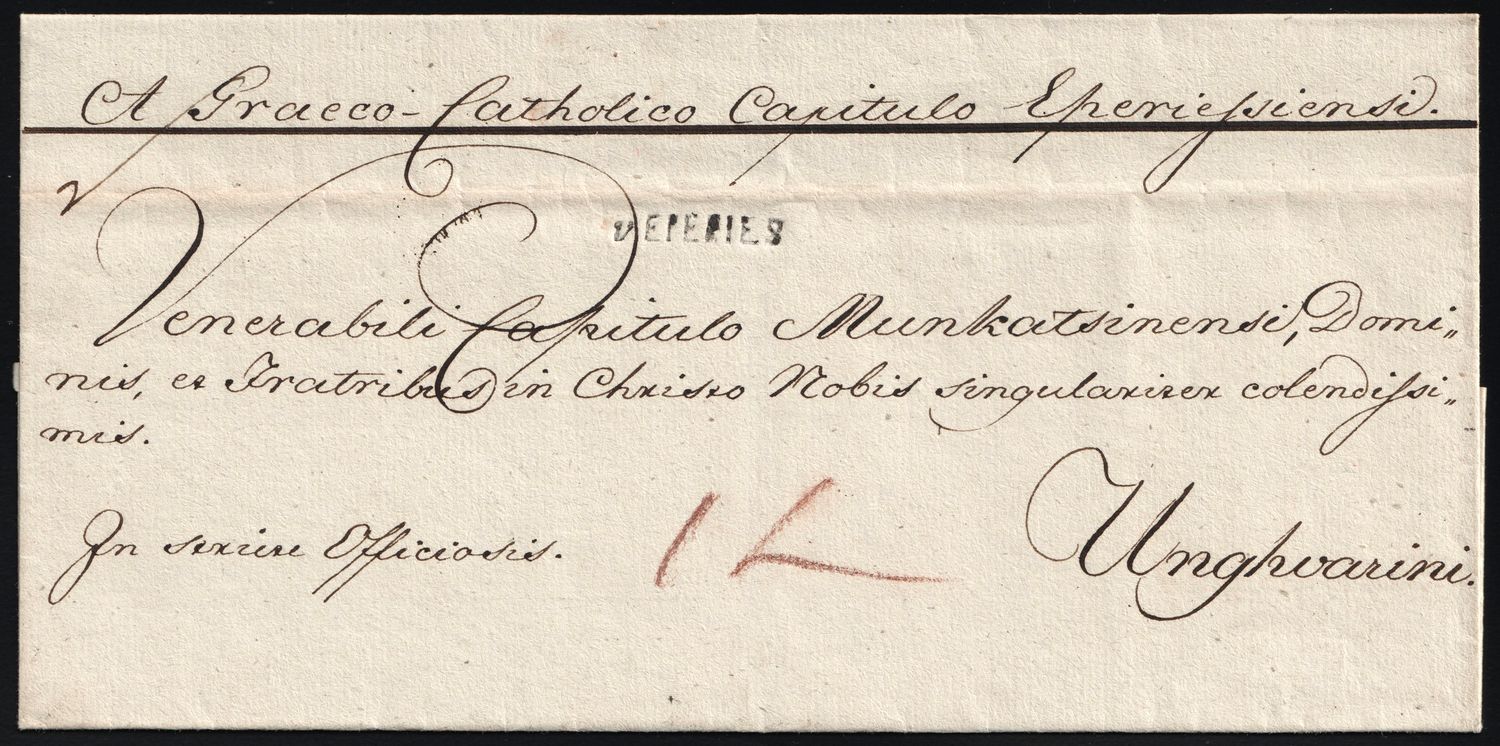 A Graeco-Catholico Capitulo Eperiessiensi.
v EPERIES
Venerabili Capitulo Munkatsinensi, Domi„
nis, et Fratribus in Christo Nobis singulariter colendissi„
mis.
In serie Officiosis.
12
Unghvarini.